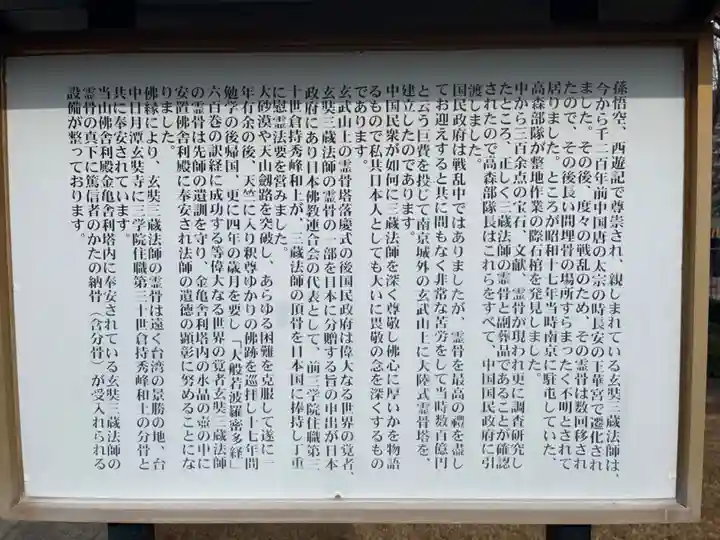 孫悟空、西遊記で尊崇され、親しまれている玄奘三蔵法師は、
今から千二百年前中国唐の太宗の時長安の玉華宮で遷化され
ました。その後、度々の戦乱のため、その霊骨は数回移され
たので、その後長い間埋骨の場所すらまったく不明とされて
居りました。ところが昭和十七年当時南京に駐屯していた、
高森部隊が整地作業の際石棺を発見しました。
中から三百余点の宝石、文献、霊骨が現われ更に調査研究し
たところ、正しく三蔵法師の霊骨と副葬品であることが確認
されたので高森部隊長はこれらをすべて、中国国民政府に引
渡しました。
国民政府は戦乱中ではありましたが、霊骨を最高の禮を盡し
てお迎えすると共に間もなく非常な苦労をして当時数百億円
と云う巨費を投じて南京城外の玄武山上に大陸式霊骨塔を、
建立したのであります。
中国民衆が如何に三蔵法師を深く尊敬し佛心に厚いかを物語
るもので私共日本人としても大いに畏敬の念を深くするもの
であります。
玄武山上の霊骨塔落慶式の後国民政府は偉大なる世界の覚者、
玄奘三蔵法師の霊骨の一部を日本に分贈する旨の申出が日本
政府にあり日本佛教連合会の代表として、前三学院住職第三
十世倉持秀峰和上が、三蔵法師の頂骨を日本国に捧持し丁重
に慰霊法要を営みました。
大砂漠や天山劔路を突破し、あらゆる困難を克服して遂に一
年有余の後、天竺に入り釈尊ゆかりの佛跡を巡拝し十七年間
勉学の後帰国、更に四年の歳月を要し「大般若波羅密多経」
六百巻の訳経に成功する等偉大なる世界の覚者玄奘三蔵法師
の霊骨は先師の遺訓を守り、金亀舎利塔内の水晶の壺の中に
安置佛舎利殿に奉安され法師の遺徳の顕彰に努めることにな
りました。
佛縁により、玄奘三蔵法師の霊骨は遠く台湾の景勝の地、台
中日月潭玄奘寺に三学院住職第三十世倉持秀峰和上の分骨と
共に奉安されています。
当山佛舎利殿金亀舎利塔内に奉安されている玄奘三蔵法師の
霊骨の真下に篤信者のかたの納骨（含分骨）が受入れられる
設備が整っております。